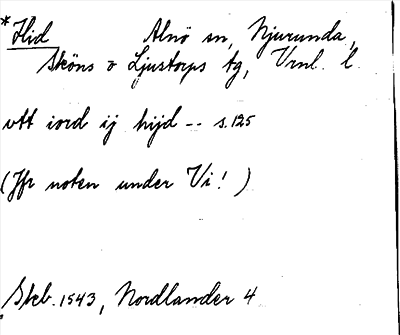 *Hlid Alnö sn, Njurunda,
Sköns o Ljustorps tg, Vrnl. l.
vtt iord ij hijd -- s. 125
(Jfr noten under Vi! )
Skb. 1543, Nordlander 4